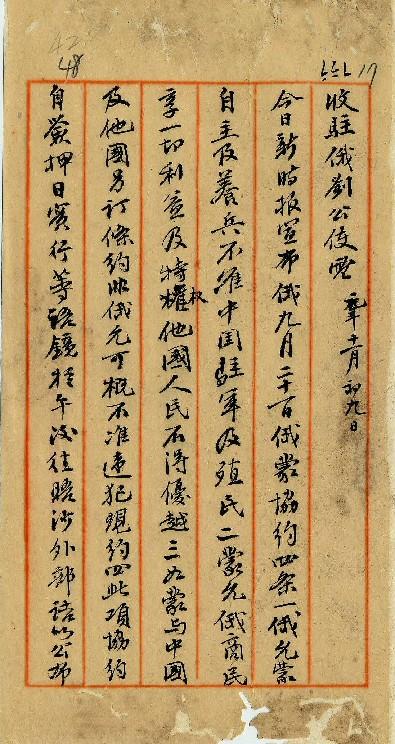 收駐俄劉公使電 元年十一月初九日
今日新時报宣布俄九月二十一日俄蒙協約四条一俄允蒙
自主及養兵不准中国駐軍及殖民二蒙允俄商民
享一切利益及特權他國人民不得優越三如蒙与中國
及他國另訂條約非俄允可概不准違犯現約四此項協約
自簽押日實行等語鏡於午後往晤沙外部詰以公布
48
17